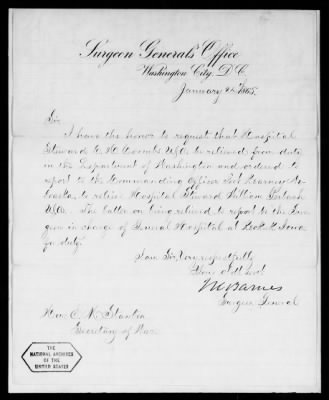 Surgeon General's Office
Washington City, D.C.
January 1865.
Sir
I have the honor to request that Hospital
Steward U.S.A. be relieved from duty
in the Department of Washington and ordered to
report to the Commanding Officer Fort Kearney Ne-
braska, to relieve Hospital Steward William
U.S.A. The latter on being relieved to report to the Sur-
geon in charge of General Hospital at Keokuk Iowa
for duty.
I am Sir, Very respectfully
Your obt servt
Barnes
Surgeon General
Hon. E. M. Stanton
Secretary of War
THE
NATIONAL ARCHIVES
OF THE
UNITED STATES